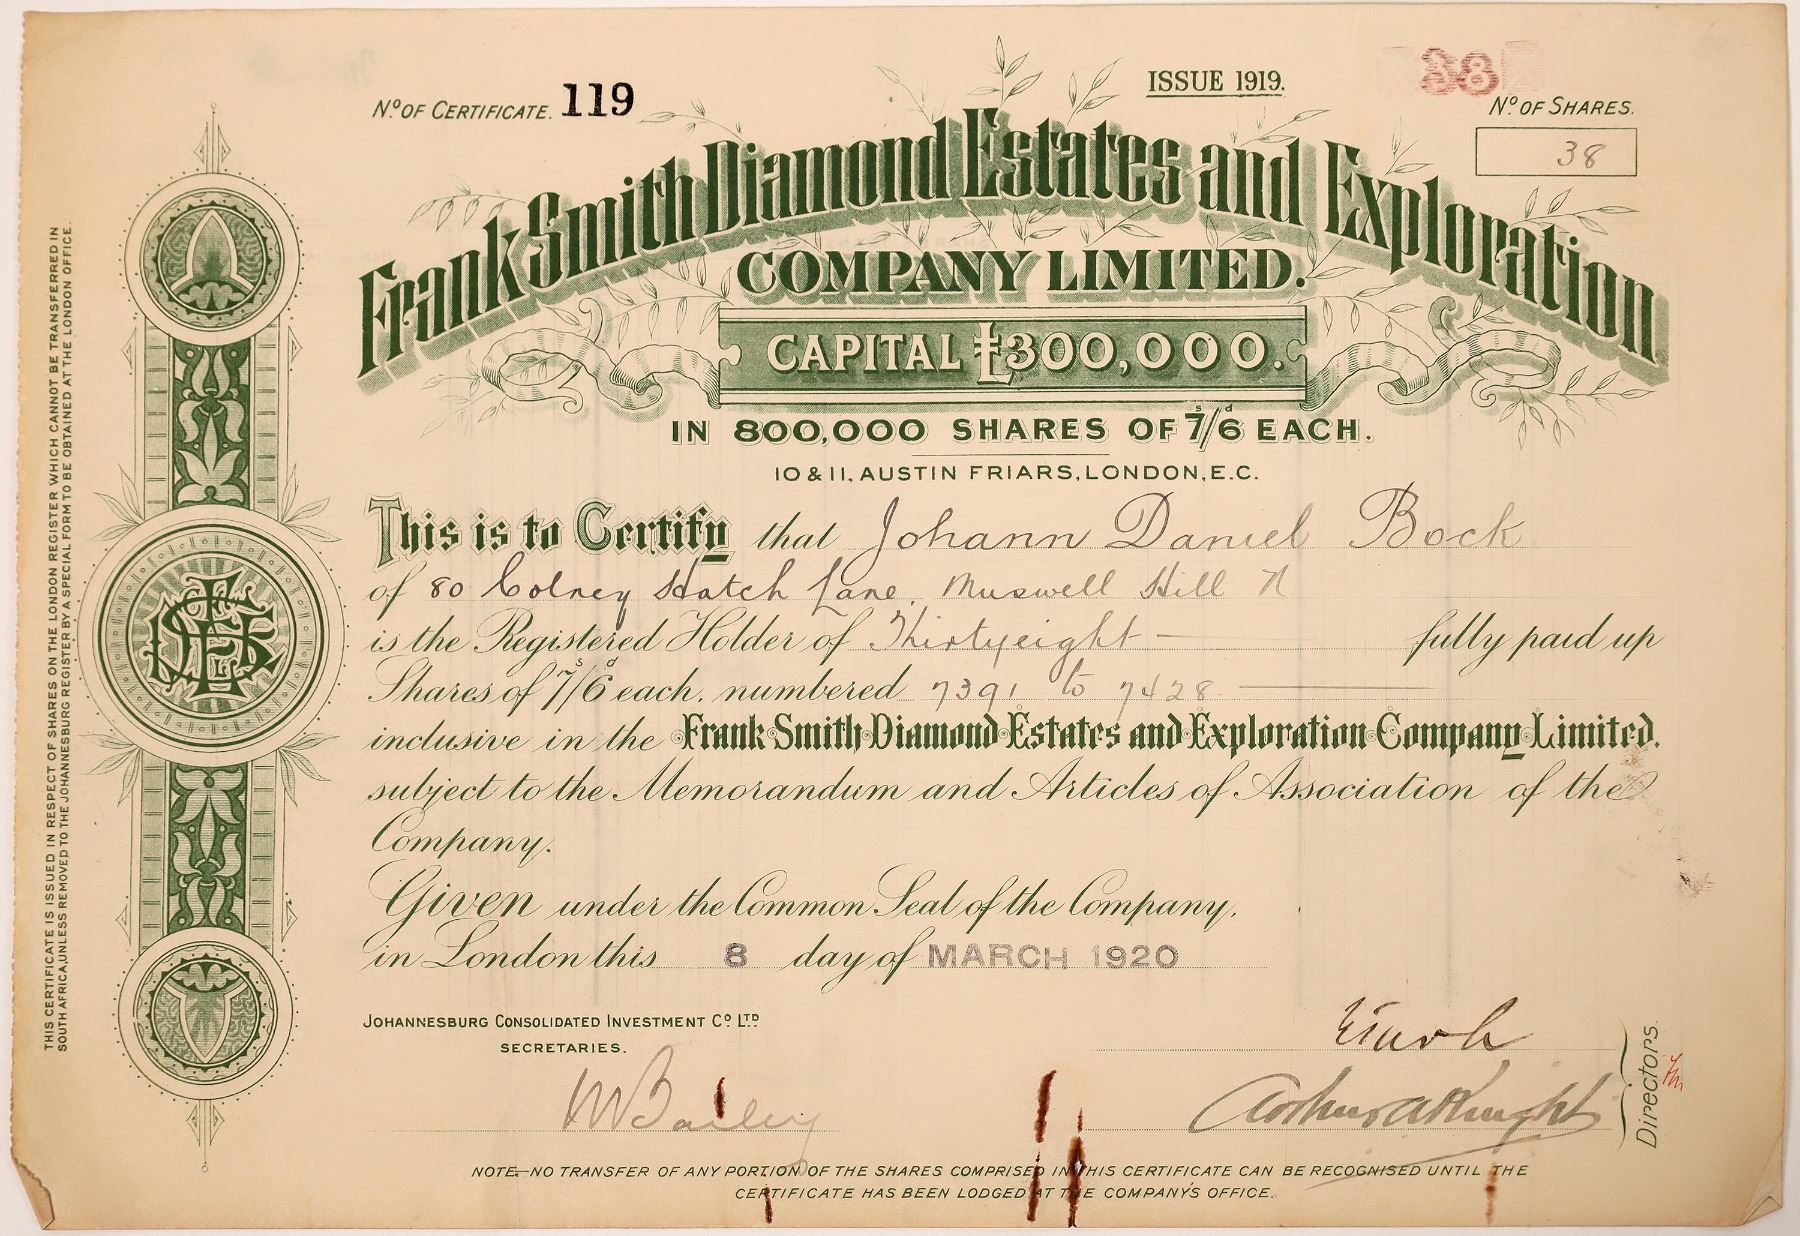 Nº OF CERTIFICATE. 119
ISSUE 1919.
38
Nº OF SHARES.
38
Frank Smith Diamond Estates and Exploration
COMPANY LIMITED.
CAPITAL £300,000.
IN 800,000 SHARES OF 7s/6d EACH.
10 & 11, AUSTIN FRIARS, LONDON, E.C.
This is to Certify that Johann Daniel Bock
of 80 Colney Hatch Lane, Muswell Hill N
is the Registered Holder of Thirtyeight — fully paid up
Shares of 7s/6d each, numbered 7391 to 7428 —
inclusive in the Frank Smith Diamond Estates and Exploration Company Limited.
subject to the Memorandum and Articles of Association of the
Company.
Given under the Common Seal of the Company,
in London this 8 day of MARCH 1920
JOHANNESBURG CONSOLIDATED INVESTMENT Cº LTD
SECRETARIES.
Bailey
Arthur A Knight
Directors.
NOTE.—NO TRANSFER OF ANY PORTION OF THE SHARES COMPRISED IN THIS CERTIFICATE CAN BE RECOGNISED UNTIL THE
CERTIFICATE HAS BEEN LODGED AT THE COMPANY'S OFFICE.
THIS CERTIFICATE IS ISSUED IN RESPECT OF SHARES ON THE LONDON REGISTER WHICH CANNOT BE TRANSFERRED IN
SOUTH AFRICA, UNLESS REMOVED TO THE JOHANNESBURG REGISTER BY A SPECIAL FORM TO BE OBTAINED AT THE LONDON OFFICE.